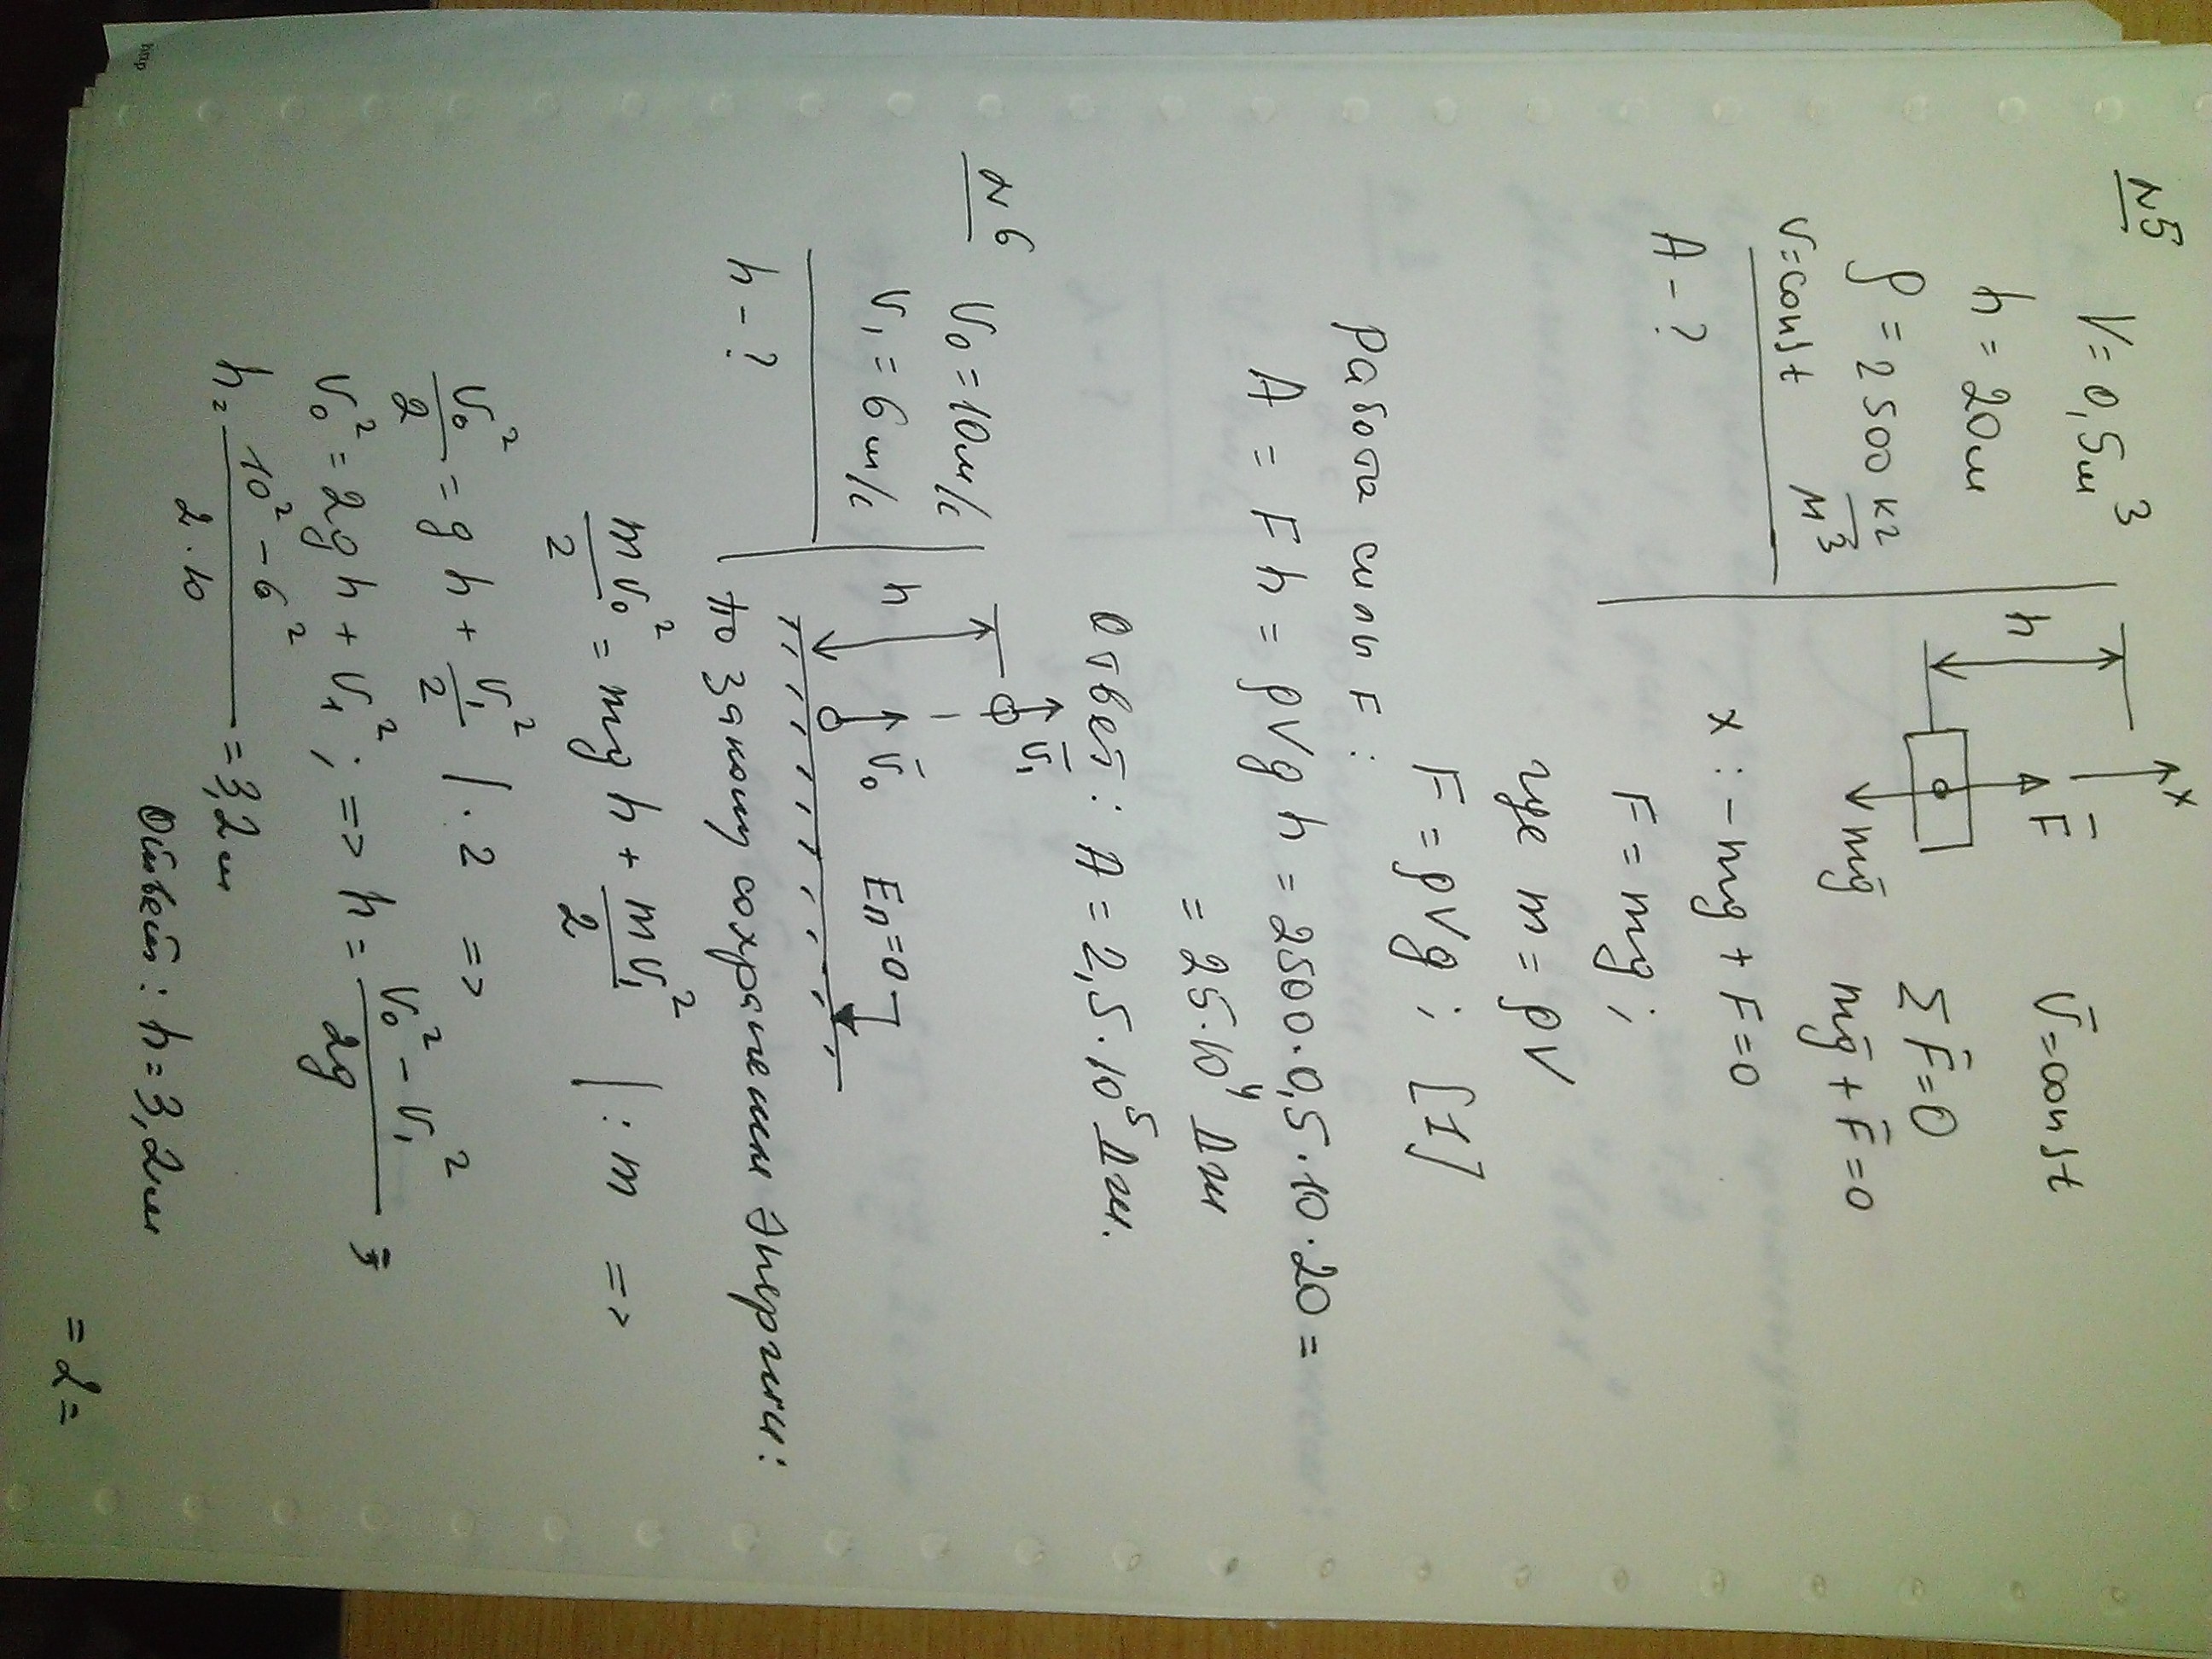 №5
V = 0,5м³
h = 20м
ρ = 2500 кг/м³
v = const
A - ?
h
x
F̄
mḡ
v̄ = const
Σ F̄ = 0
mḡ + F̄ = 0
x: -mg + F = 0
F = mg;
где m = ρV
F = ρVg; [1]
Работа силы F:
A = Fh = ρVgh = 2500·0,5·10·20 =
= 25·10⁴ Дж
Ответ: A = 2,5·10⁵ Дж.
№6
v₀ = 10м/с
v₁ = 6м/с
h - ?
h
v̄₁
v̄₀
Eп = 0
По закону сохранения энергии:
mv₀²/2 = mgh + mv₁²/2 |: m =>
v₀²/2 = gh + v₁²/2 |·2 =>
v₀² = 2gh + v₁²; => h = (v₀² - v₁²)/2g;
h = (10² - 6²)/(2·10) = 3,2м
Ответ: h = 3,2м
= 2 =
http